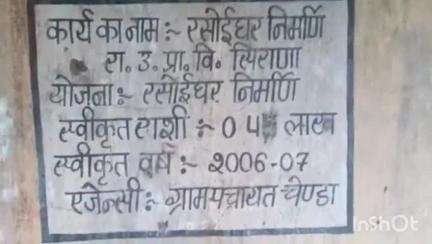 कार्य का नाम :- रसोईघर निर्माण
रा. उ. प्रा. वि. सिराणा
योजना :- रसोईघर निर्माण
स्वीकृत राशी :- 0 4 लाख
स्वीकृत वर्ष :- 2006-07
एजेन्सी :- ग्रामपंचायत चेण्डा
InShOt